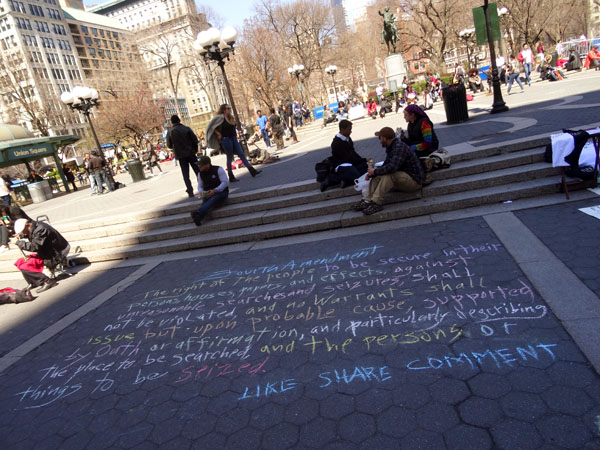 Union Square
Fourth Amendment
The right of the people to be secure in their
persons, houses, papers, and effects, against
unreasonable searches and seizures, shall
not be violated, and no Warrants shall
issue but upon probable cause, supported
by Oath or affirmation, and particularly describing
the place to be searched, and the persons or
things to be seized.
LIKE SHARE COMMENT